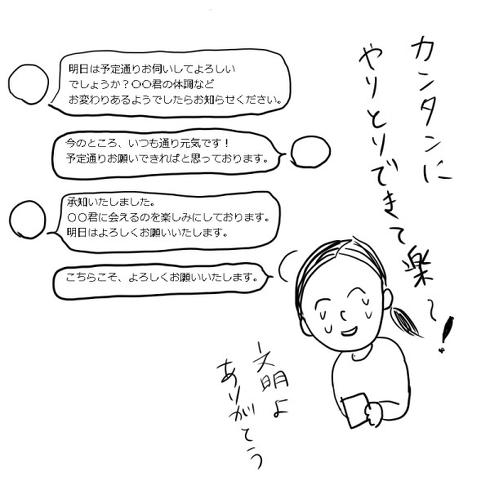 カンタンに
やりとりできて楽〜!
明日は予定通りお伺いしてよろしい
でしょうか?〇〇君の体調など
お変わりあるようでしたらお知らせください。
今のところ、いつも通り元気です!
予定通りお願いできればと思っております。
承知いたしました。
〇〇君に会えるのを楽しみにしております。
明日はよろしくお願いいたします。
こちらこそ、よろしくお願いいたします。
文明よ
ありがとう